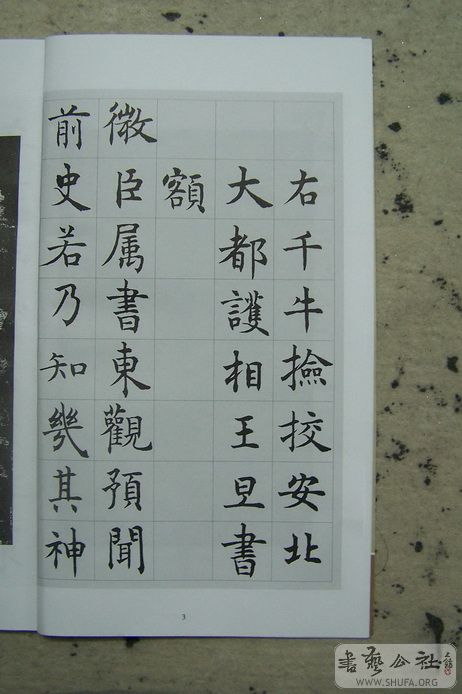 右千牛撿挍安北
大都護相王旦書
額
微臣属書東觀預聞
前史若乃知幾其神
3
書藝公社
WWW.SHUFA.ORG